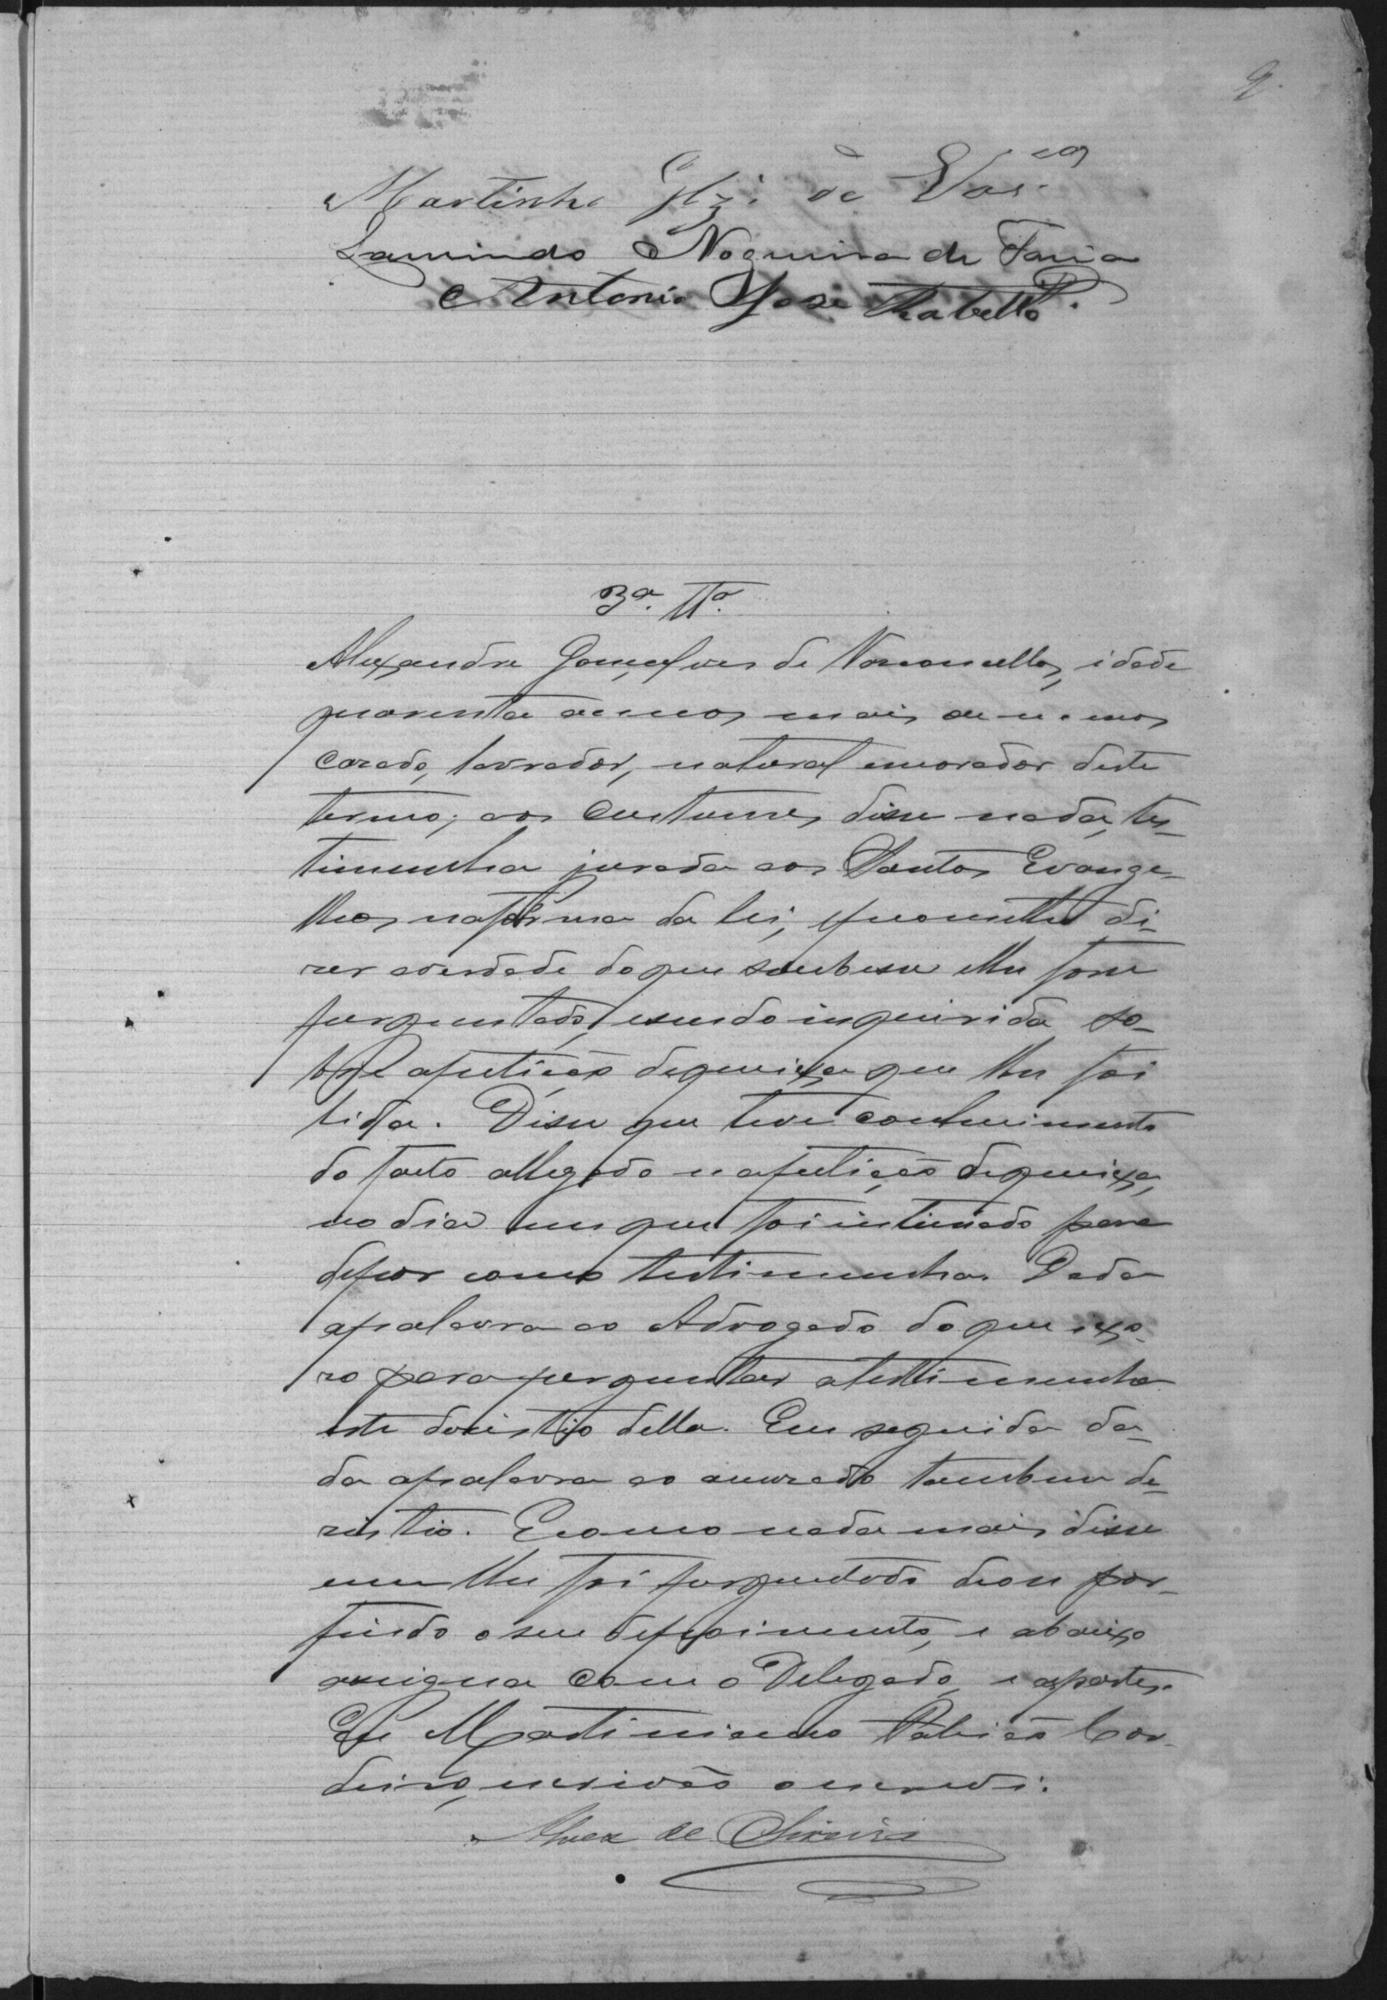 9
Martinho Glz. de Vas.cos
Laurindo Nogueira de Faria
Antonio Jose Rabello.
3ª. Tª.
Alexandre Gonçalves de Vasconcellos, idade
quarenta annos mais ou menos
casado, lavrador, natural e morador deste
termo; aos costumes disse nada, tes-
timunha jurada aos Santos Evange-
lhos na forma da lei, e prometteu di-
zer a verdade do que soubesse e lhe fosse
perguntado, e sendo inquirida so-
bre a petição de queixa que lhe foi
lida. Disse que teve conhecimento
do facto allegado na petição de queixa,
no dia em que foi intimado para
depor como testimunha. Dada
a palavra ao Advogado do queixo-
so para perguntar a testimunha
este desistio della. Em seguida da-
da a palavra ao accusado tambem de-
sistio. E como nada mais disse
e nem lhe foi perguntado deou por
findo o seu depoimento, e abaixo
assigna com o Delegado, e as partes.
Eu Martiniano Cor-
deiro, escrivão o escrevi.
Alves de Oliveira